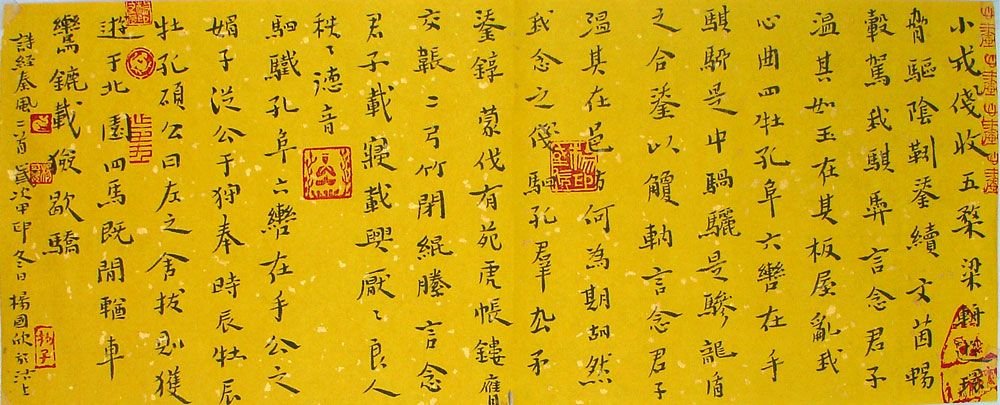 小戎俴收五楘梁輈游環
脅驅陰靷鋈續文茵暢
轂駕我騏馵言念君子
溫其如玉在其板屋亂我
心曲四牡孔阜六轡在手
騏駵是中騧驪是驂龍盾
之合鋈以觼軜言念君子
溫其在邑方何為期胡然
我念之俴駟孔羣厹矛
鋈錞蒙伐有苑虎帳鏤膺
交韔二弓竹閉緄縢言念
君子載寢載興厭〻良人
秩〻德音
駟驖孔阜六轡在手公之
媚子從公于狩奉時辰牡辰
牡孔碩公曰左之舍拔則獲
遊于北園四馬既閒輶車
鸞鑣載獫歇驕
詩經秦風二首 歲次甲申冬日楊國欣於